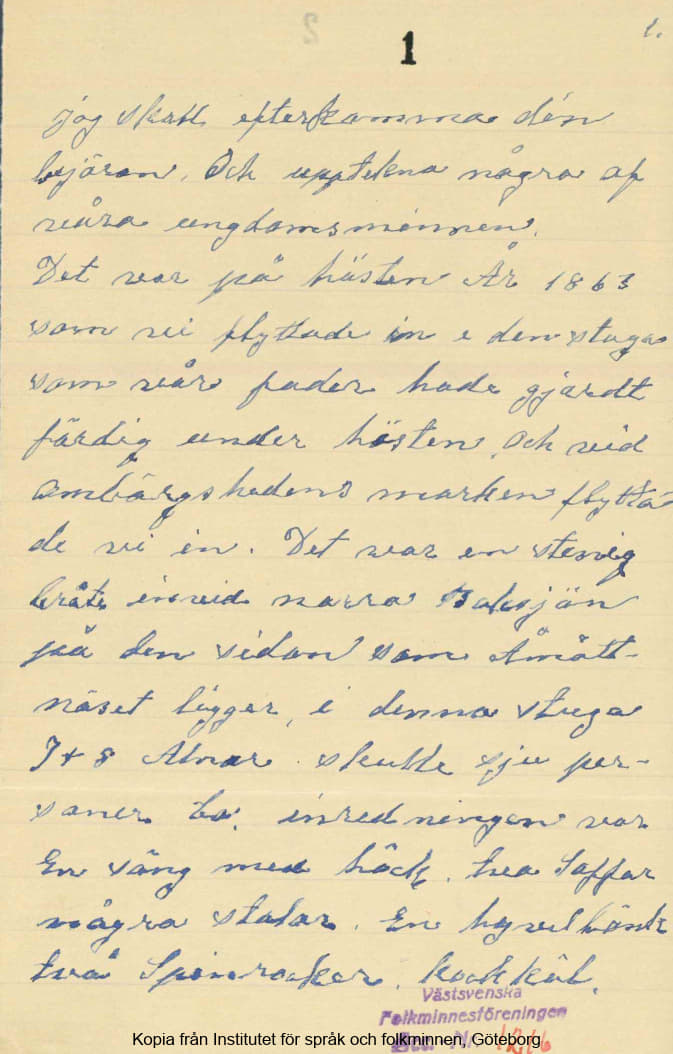 1.
1
jag skall efterkomma den
bejäran. Och upptekna några af
våra ungdomsminnen.
Det var på hösten År 1863
som vi flyttade in i den stuga
som vår fader hade gjordt
färdig under hösten. Och vid
marken flytta
de vi in. Det var en stenig
bråte invid norra
på den sidan som Åmått-
näset ligger, i denna stuga
7 + 8 Alnar. skulle sju per-
soner bo. inredningen var
En säng med håck. två Soffor
några stolar. En hyvelbänk
två Spinrockar. kockkål.
Västsvenska
Folkminnesföreningen
Kopia från Institutet för språk och folkminnen, Göteborg
Acc. Nr. 1266